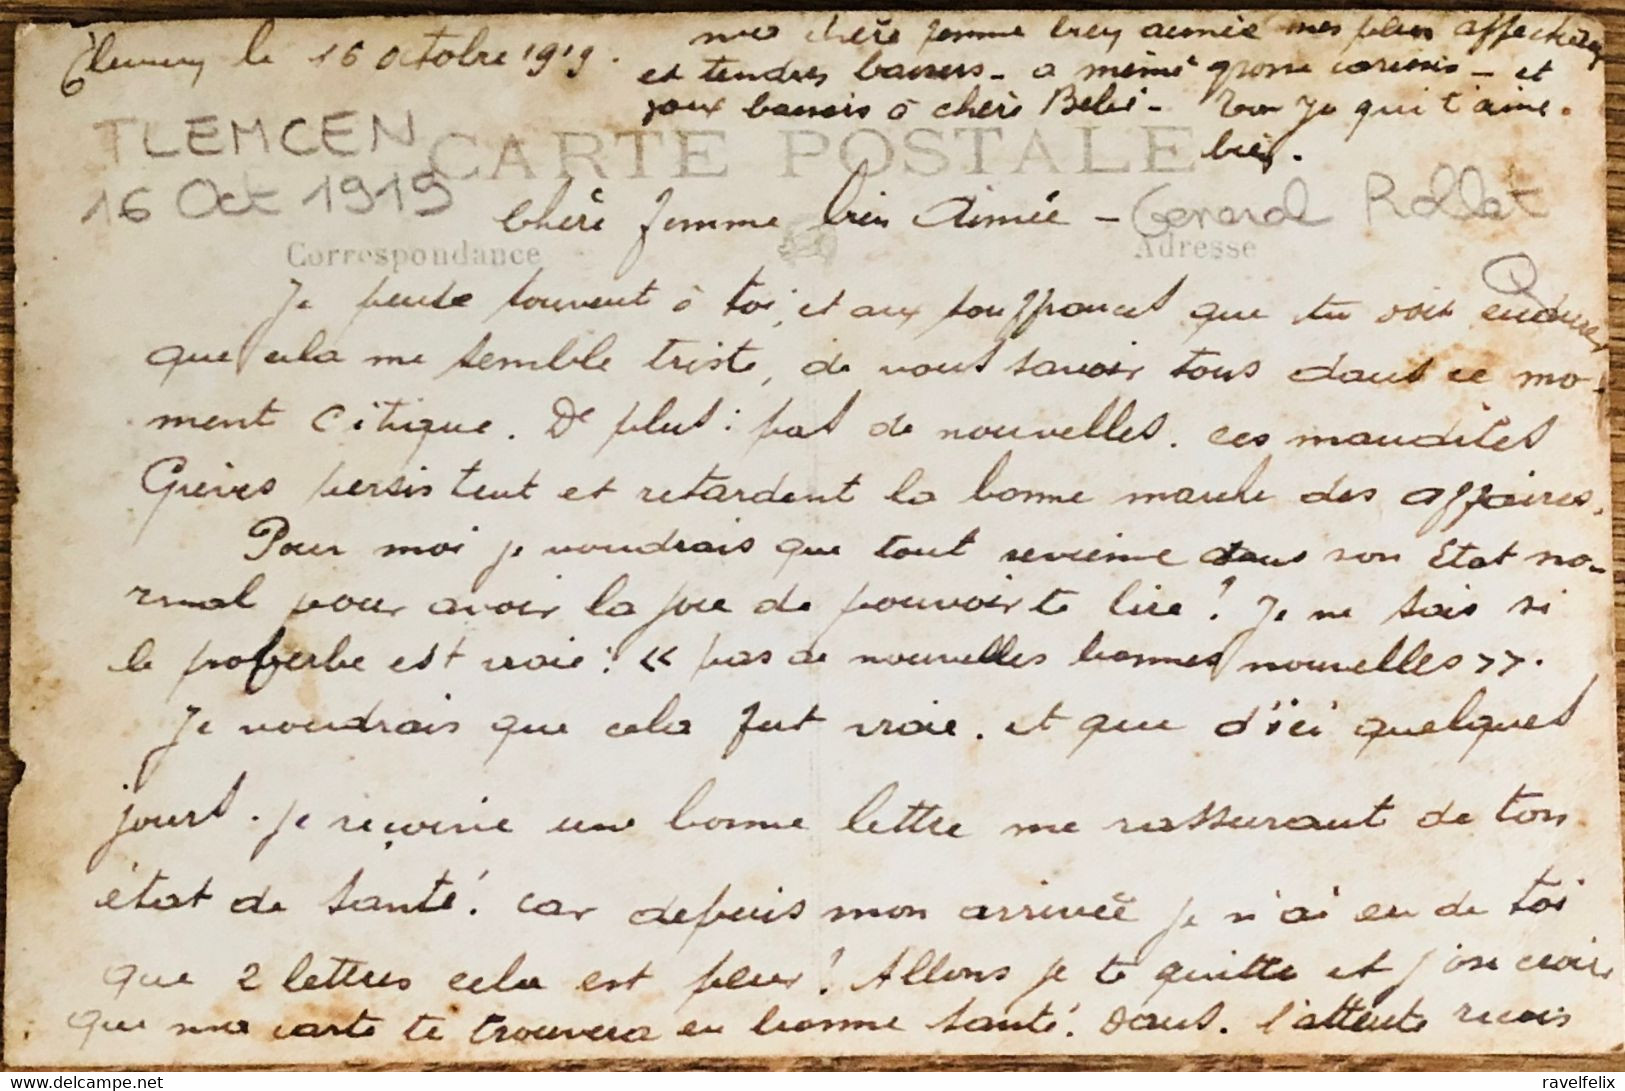 le 16 octobre 1919.
chère femme bien aimée mes plus
et tendres baisers - a mémé grosse - et
baisers à chère Bébé - Ton qui t'aime
bien.
TLEMCEN
16 Oct 1919
CARTE POSTALE
Gerard Rollat
Chère femme bien Aimée -
Correspondance
Adresse
Je pense souvent à toi, et aux souffrances que tu dois endurer
que cela me semble triste, de vous savoir tous dans ce mo-
ment Citique. De plus : pas de nouvelles. ces maudites
Grèves persistent et retardent la bonne marche des affaires.
Pour moi je voudrais que tout revienne dans son Etat no-
rmal pour avoir la joie de pouvoir te lire ! Je ne sais si
le proverbe est vraie : « pas de nouvelles bonnes nouvelles ».
Je voudrais que cela fut vraie. et que d'ici quelques
jours. je reçoive une bonne lettre me rassurant de ton
état de santé ! car depuis mon arrivée je n'ai eu de toi
que 2 lettres cela est peu ! Allons je te quitte et j'ose croire
que ma carte te trouvera en bonne santé. Dans. l'attente reçois
ravelfelix